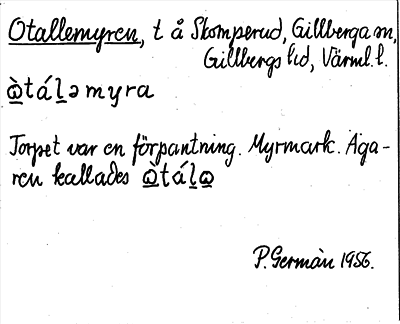 Otallemyren, t å Skomperud, Gillberga sn,
Gillbergs hd, Värml. l.
ὼ̱táḻəmyra
Torpet var en förpantning. Myrmark. Äga-
ren kallades ὼ̱táḻω̱
P. Germàn 1956.